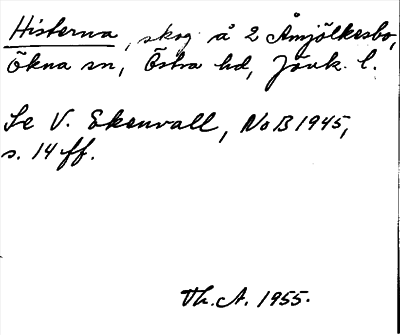 Histerna, skog å 2 Åmjölkesbo,
Ökna sn, Östra hd, Jönk. l.
Se V. Ekenvall, NoB 1945,
s. 14 ff.
Th. A. 1955.